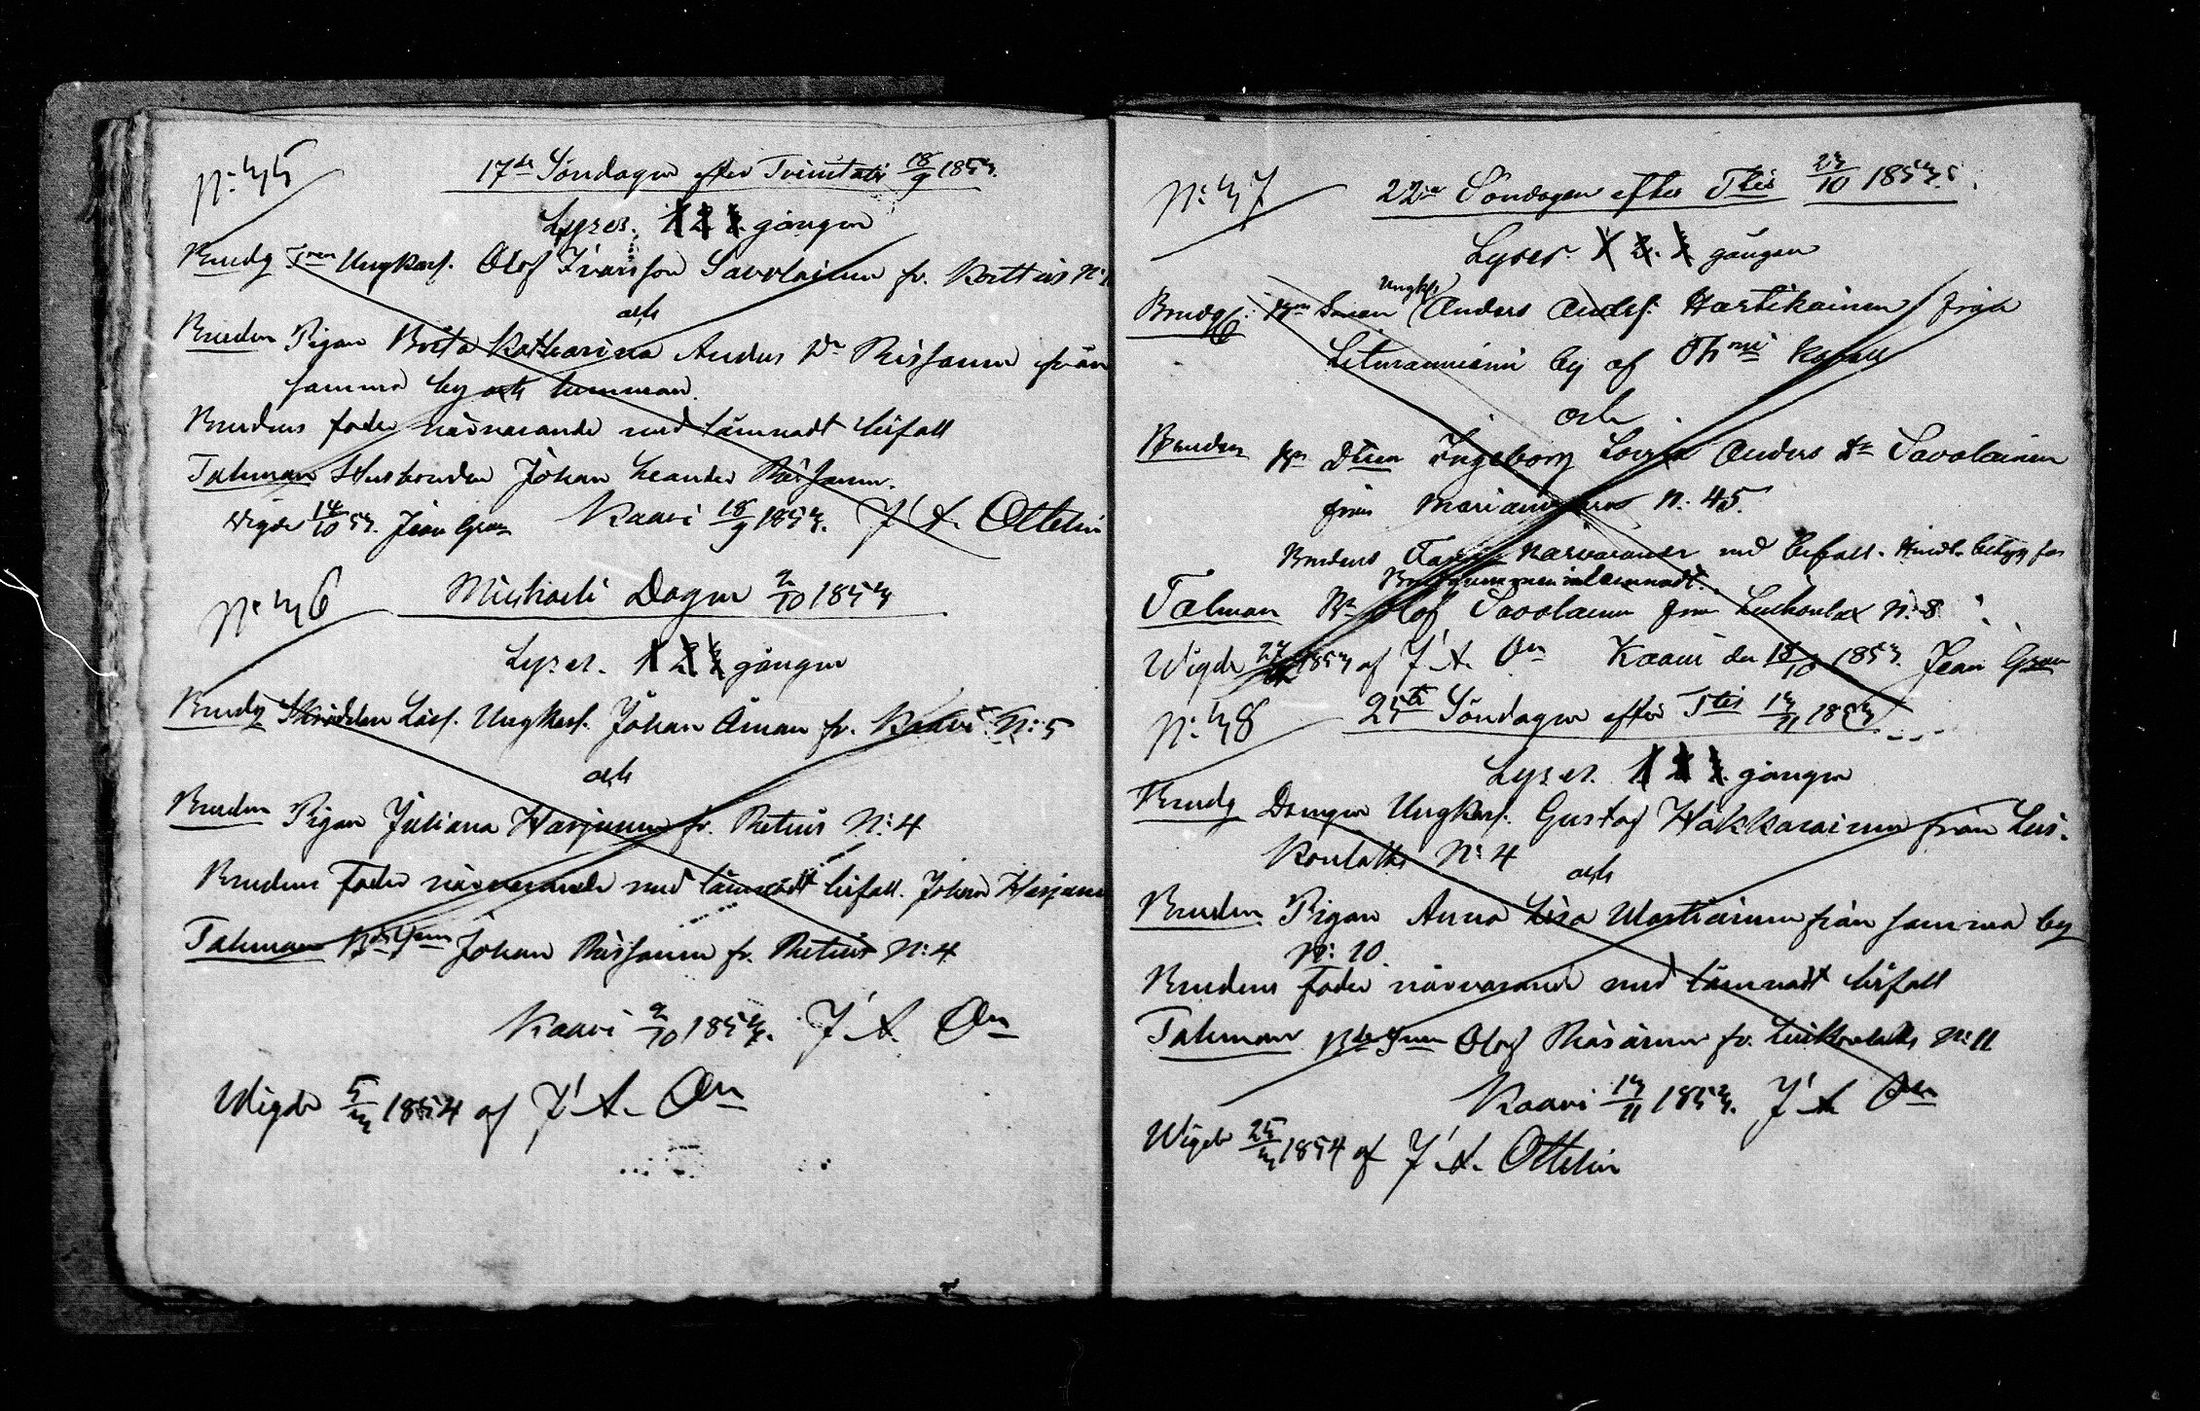 N: 35
17de Söndagen efter Trinitatis 18/9 1853.
Lyses. 1 2 3 gången
Brudg Ungkarl. Olof Ivarsson Savolainen fr. Kortteis N:
och
Bruden Pigan Brita Katharina Anders Dr Räsänen från
samma by och hemman.
Brudens fader närvarande med lämnadt bifall
Talman Husbonden Johan Leander Räsänen.
Vigde 14/10 53. Jean Gran Kaavi 18/9 1853. J. A. Ottelin
N: 36
Michaeli Dagen 2/10 1853
Lyses. 1 2 3 gången
Brudg Skrädden Lösf. Ungkarl. Johan Åman fr. Kaavi N: 5
och
Bruden Pigan Juliana Harjunen fr. Retuis N: 4
Brudens fader närvarande med lämnadt bifall. Johan Harjunen
Talman Johan Räsänen fr. Retuis N: 4
Kaavi 2/10 1853. J. A. On
Wigde 5/3 1854 af J. A. On
N: 37
22re Söndagen efter Ttis 23/10 1853.
Lyses. 1 2. 3 gången
Brudg: Ungk Anders Andes. Hartikainen från
by af
och
Bruden Ingeborg Lovisa Anders Dr Savolainen
från N: 45.
Brudens närvarande med bifall.
Talman Olof Savolainen från N: 8
Wigde 27/ 1853 af J. A. On Kaavi den 18/10 1853. Jean Gran
N: 38
25te Söndagen efter Ttis 13/11 1853
Lyses. 1 2 3 gången
Brudg Drängen Ungkarl. Gustaf Hakkarainen från Lui-
konlaks N: 4
och
Bruden Pigan Anna Lisa Martiainen från samma by
N: 10.
Brudens fader närvarande med lämnadt bifall
Talman Olof Räsänen fr. Luikonlaks N: 11
Kaavi 13/11 1853. J. A. On
Wigde 25/3 1854 af J. A. Ottelin